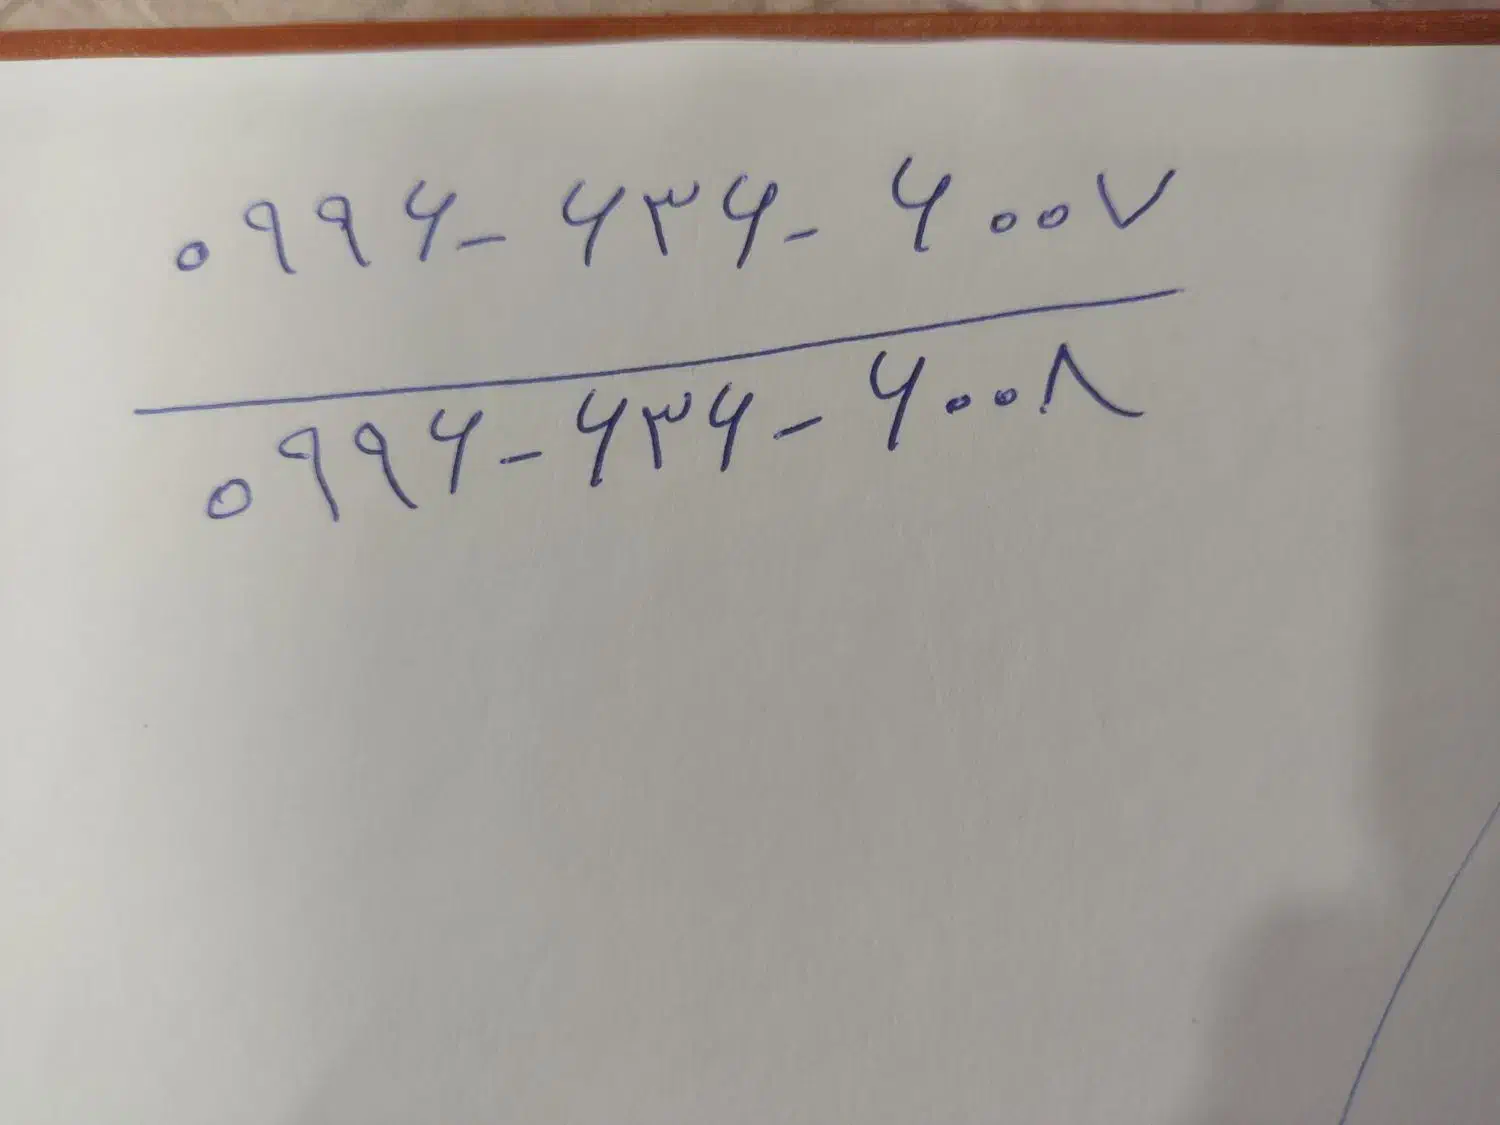 ۰۹۹۶-۶۳۶-۶۰۰۷
۰۹۹۶-۶۳۶-۶۰۰۸